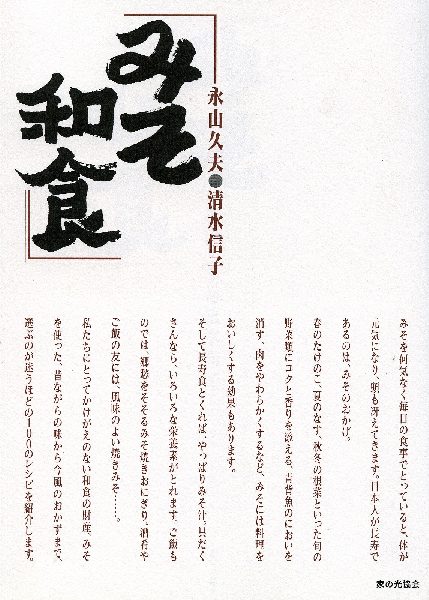 みそ
和食
永山久夫●清水信子
みそを何気なく毎日の食事でとっていると、体が
元気になり、頭も冴えてきます。日本人が長寿で
あるのは、みそのおかげ。
春のたけのこ、夏のなす、秋冬の根菜といった旬の
野菜類にコクと香りを添える、青背魚のにおいを
消す、肉をやわらかくするなど、みそには料理を
おいしくする効果もあります。
そして長寿食とくれば、やっぱりみそ汁。具だく
さんなら、いろいろな栄養素がとれます。ご飯も
のでは、郷愁をそそるみそ焼きおにぎり、酒肴や
ご飯の友には、風味のよい焼きみそ……。
私たちにとってかけがえのない和食の財産、みそ
を使った、昔ながらの味から今風のおかずまで、
選ぶのが迷うほどの100のレシピを紹介します。
家の光協会